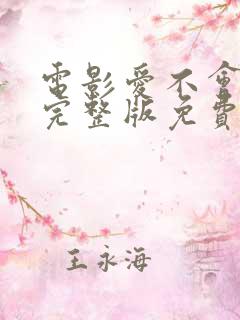 電影愛不會
完整版免費
王永海